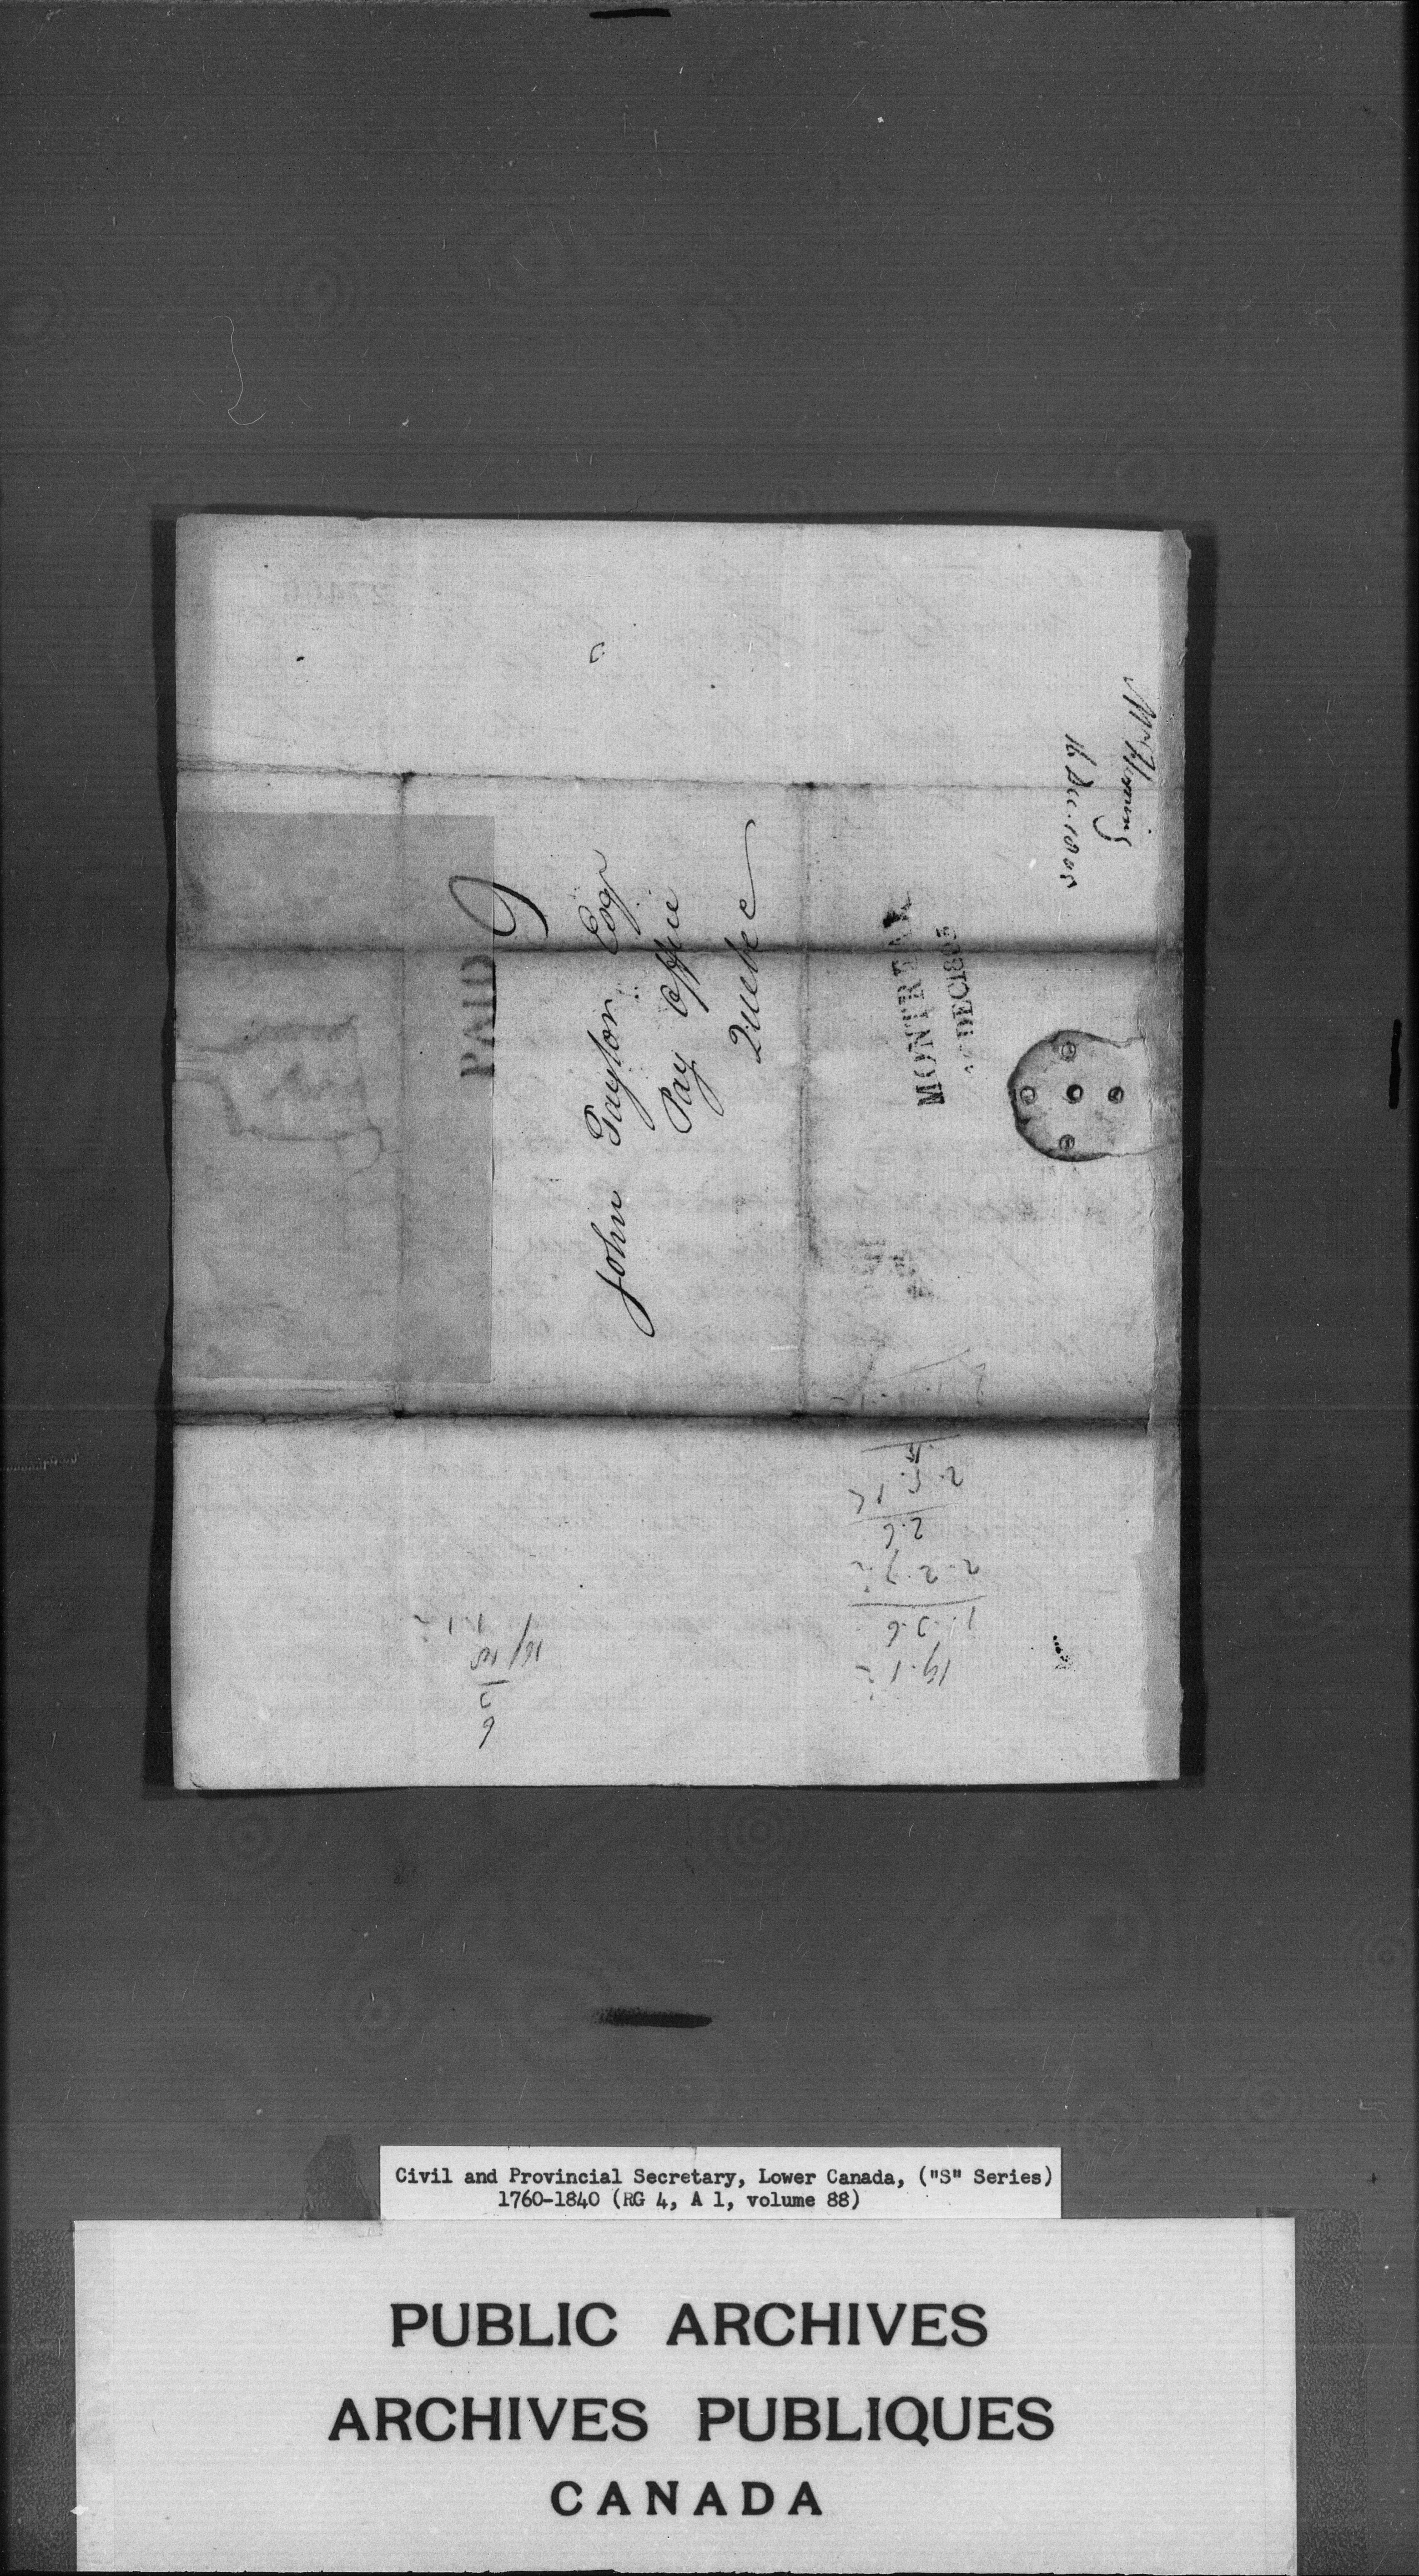 PAID 9
John Taylor Esqr
Pay Office
Quebec
MONTREAL
DEC 1805
16 Dec. 1805
2.6
2.2.7
19.1
Civil and Provincial Secretary, Lower Canada, ("S" Series)
1760-1840 (RG 4, A 1, volume 88)
PUBLIC ARCHIVES
ARCHIVES PUBLIQUES
CANADA